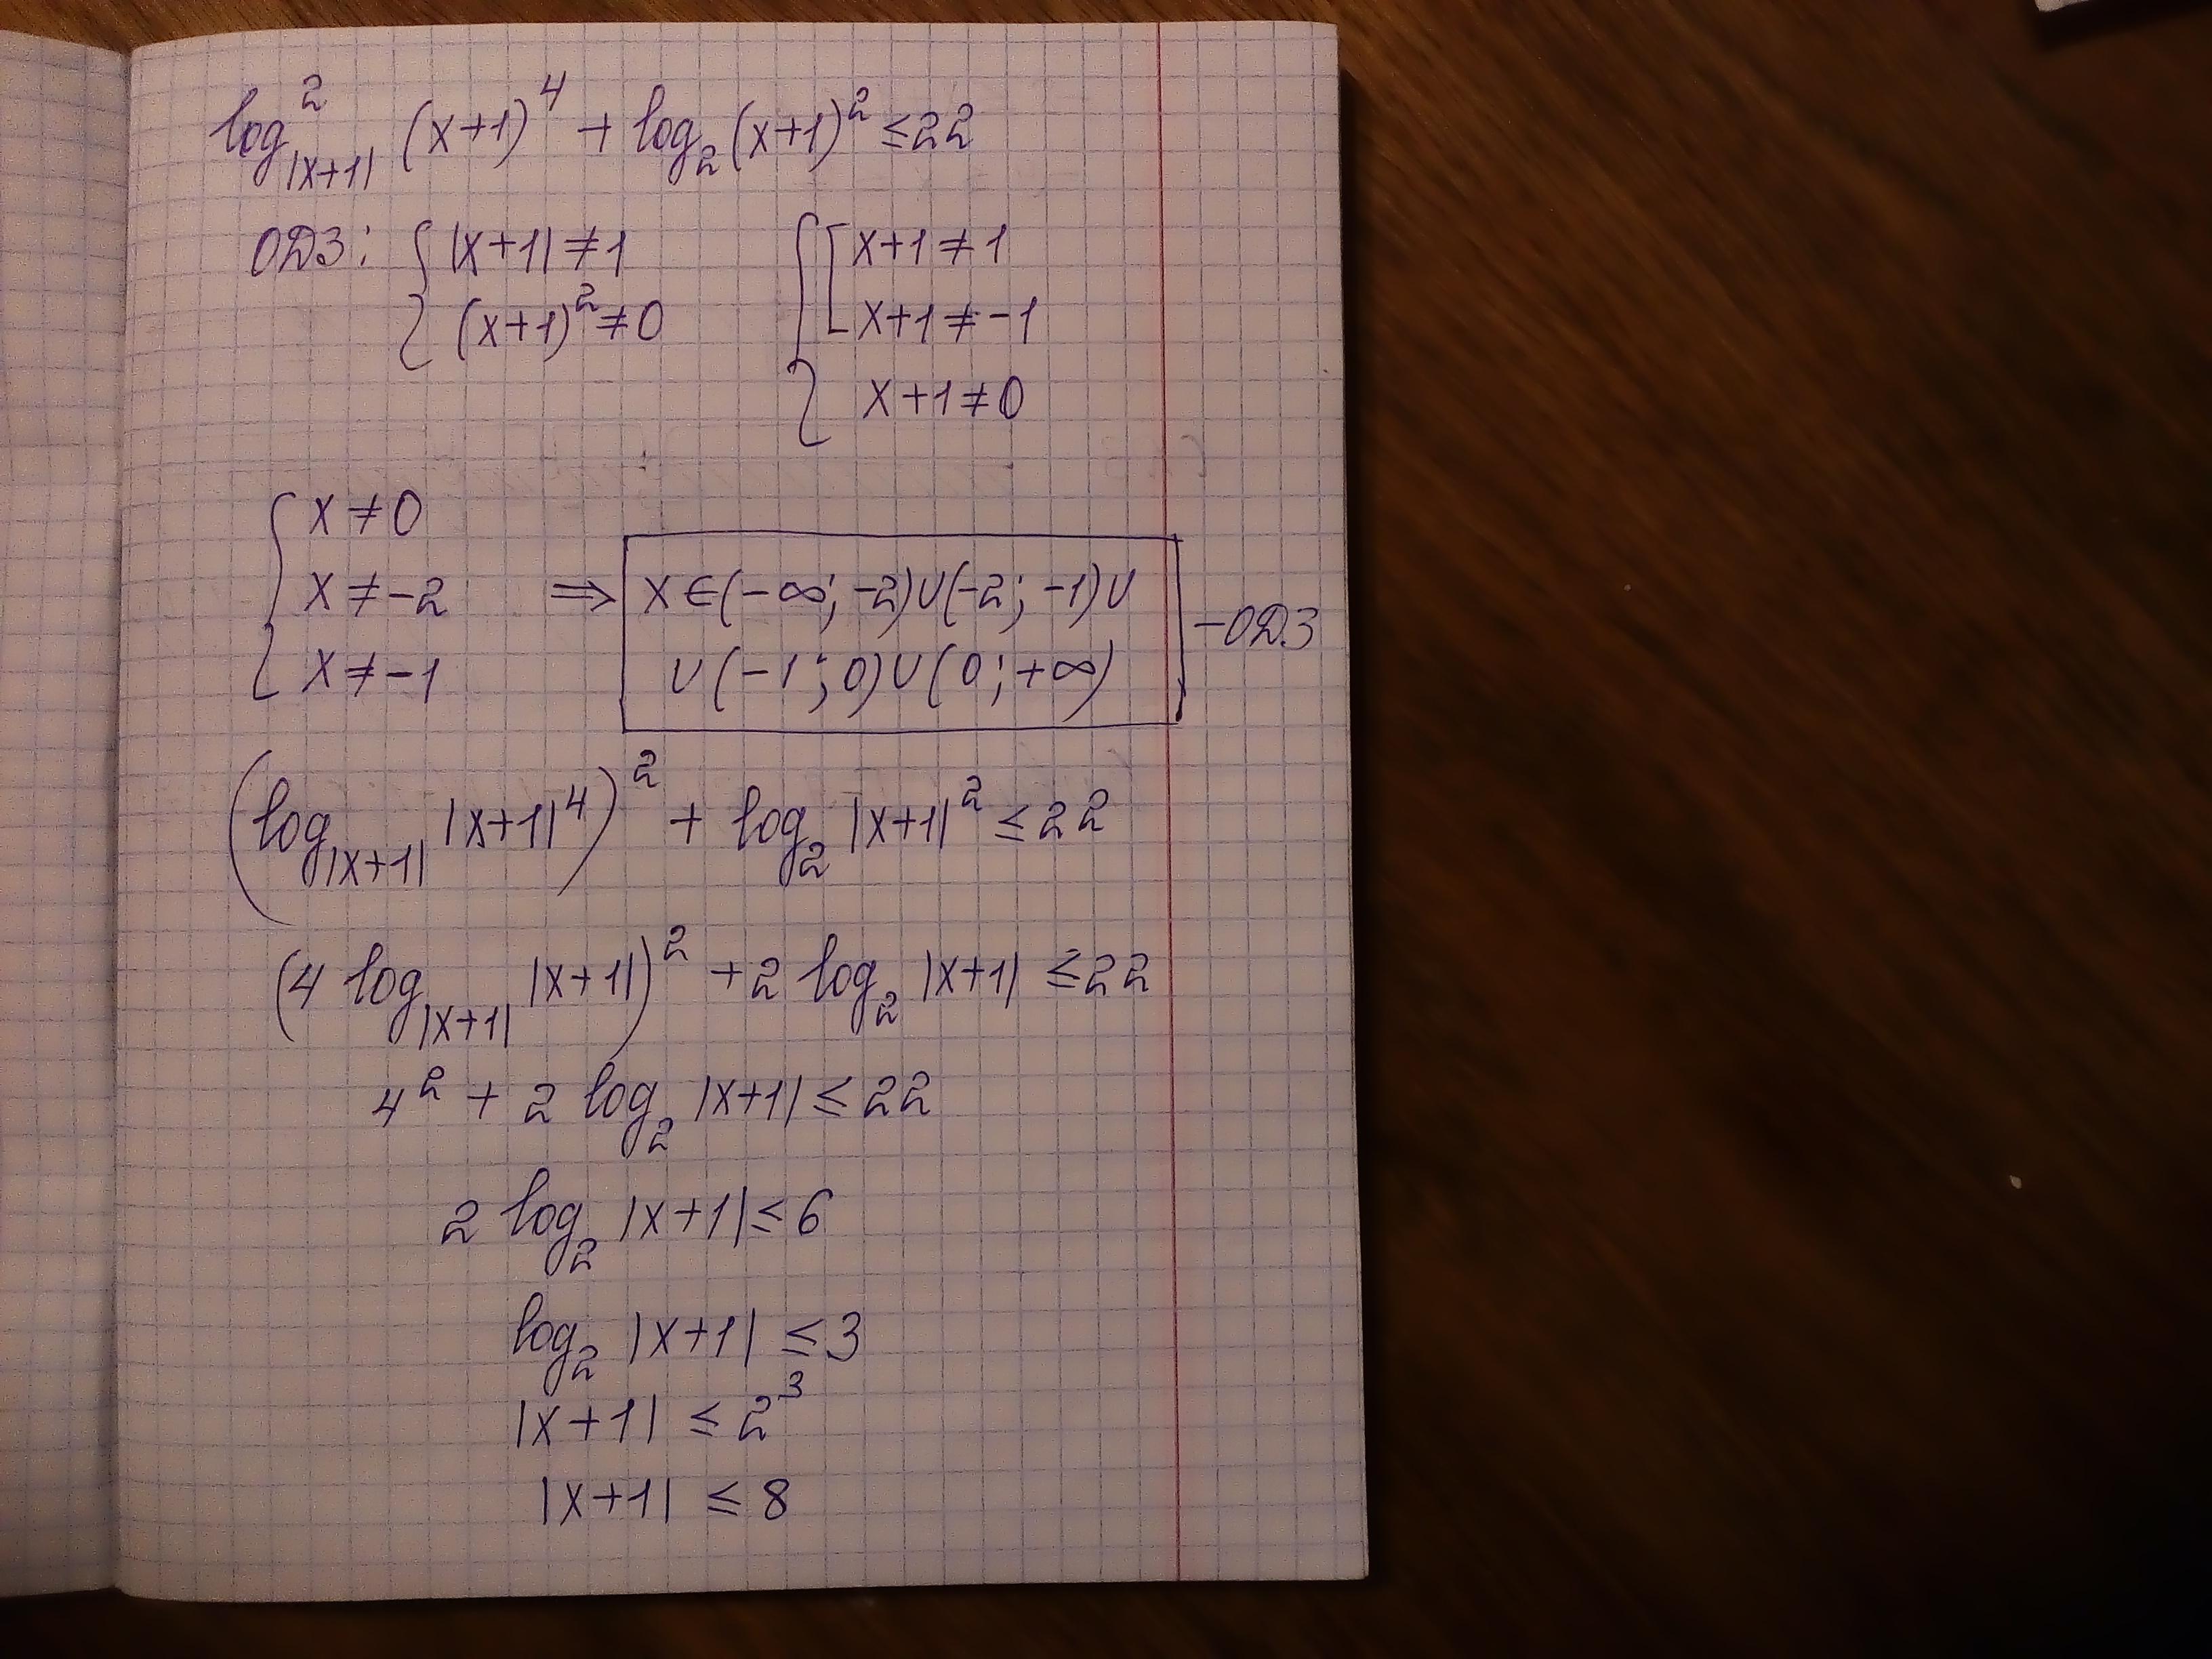 log²_|x+1| (x+1)⁴ + log₂(x+1)² ≤ 22
ОДЗ: { |x+1| ≠ 1 { [ x+1 ≠ 1
(x+1)² ≠ 0 x+1 ≠ -1
x+1 ≠ 0
{ x ≠ 0
x ≠ -2 ⇒ x ∈ (-∞; -2) ∪ (-2; -1) ∪
∪ (-1; 0) ∪ (0; +∞) - ОДЗ
x ≠ -1
(log_|x+1| |x+1|⁴)² + log₂ |x+1|² ≤ 22
(4 log_|x+1| |x+1|)² + 2 log₂ |x+1| ≤ 22
4² + 2 log₂ |x+1| ≤ 22
2 log₂ |x+1| ≤ 6
log₂ |x+1| ≤ 3
|x+1| ≤ 2³
|x+1| ≤ 8